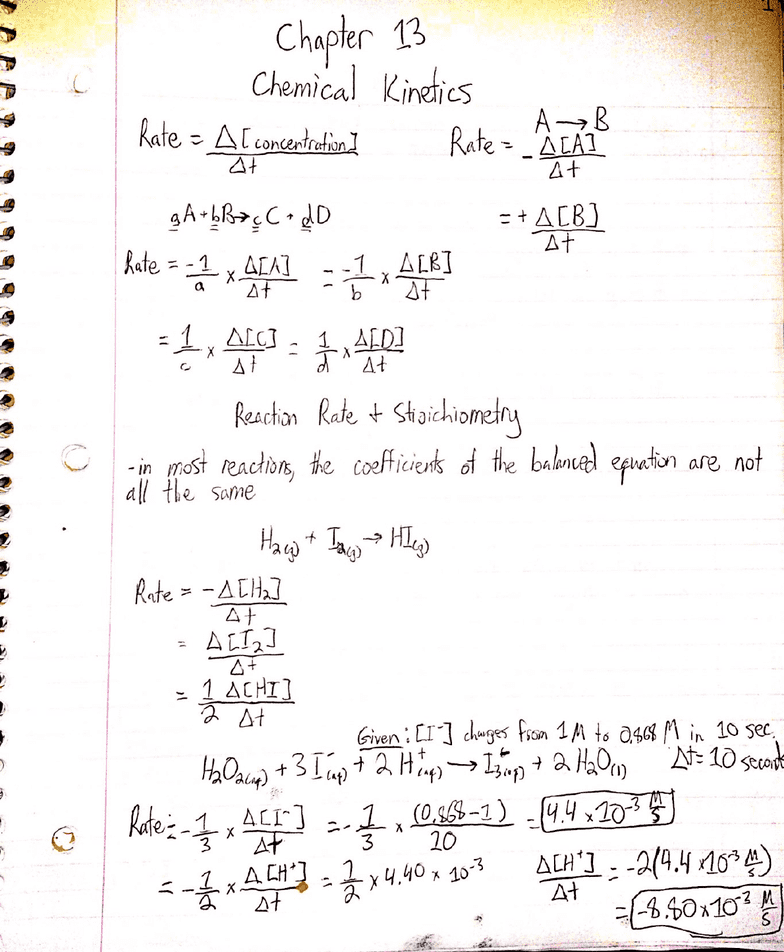 Chapter 13
Chemical Kinetics
Rate = Δ[concentration]/Δt
A → B
Rate = -Δ[A]/Δt
= + Δ[B]/Δt
aA + bB → cC + dD
Rate = -1/a × Δ[A]/Δt = -1/b × Δ[B]/Δt
= 1/c × Δ[C]/Δt = 1/d × Δ[D]/Δt
Reaction Rate + Stioichiometry
-in most reactions, the coefficients of the balanced equation are not
all the same
H₂(g) + I₂(g) → HI(g)
Rate = -Δ[H₂]/Δt
= Δ[I₂]/Δt
= 1/2 Δ[HI]/Δt
Given: [I⁻] changes from 1M to 0.868 M in 10 sec.
H₂O₂(aq) + 3I⁻(aq) + 2H⁺(aq) → I₃⁻(aq) + 2H₂O(l) Δt = 10 seconds
Rate = -1/3 × Δ[I⁻]/Δt = -1/3 × (0.868-1)/10 = 4.4 × 10⁻³ M/s
= -1/2 × Δ[H⁺]/Δt = 1/2 × 4.40 × 10⁻³
Δ[H⁺]/Δt = -2(4.4 × 10⁻³ M/s)
= -8.80 × 10⁻³ M/s